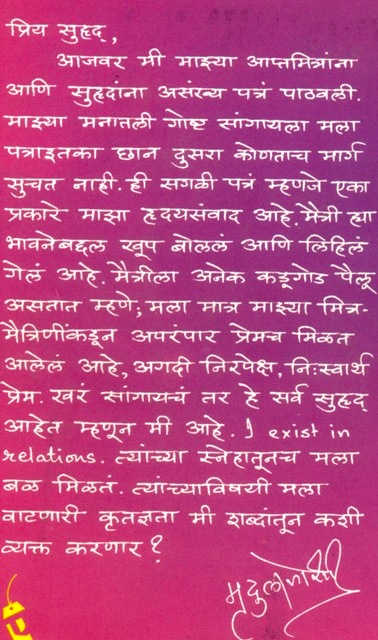 प्रिय सुहृद्,
आजवर मी माझ्या आप्तमित्रांना
आणि सुहृदांना असंख्य पत्रं पाठवली.
माझ्या मनातली गोष्ट सांगायला मला
पत्राइतका छान दुसरा कोणताच मार्ग
सुचत नाही. ही सगळी पत्रं म्हणजे एका
प्रकारे माझा हृदयसंवाद आहे. मैत्री ह्या
भावनेबद्दल खूप बोललं आणि लिहिलं
गेलं आहे. मैत्रीला अनेक कडूगोड पैलू
असतात म्हणे; मला मात्र माझ्या मित्र-
मैत्रिणींकडून अपरंपार प्रेमच मिळत
आलेलं आहे, अगदी निरपेक्ष, निःस्वार्थ
प्रेम. खरं सांगायचं तर हे सर्व सुहृद्
आहेत म्हणून मी आहे. I exist in
relations. त्यांच्या स्नेहातूनच मला
बळ मिळतं. त्यांच्याविषयी मला
वाटणारी कृतज्ञता मी शब्दांतून कशी
व्यक्त करणार?
मृदुला जोशी